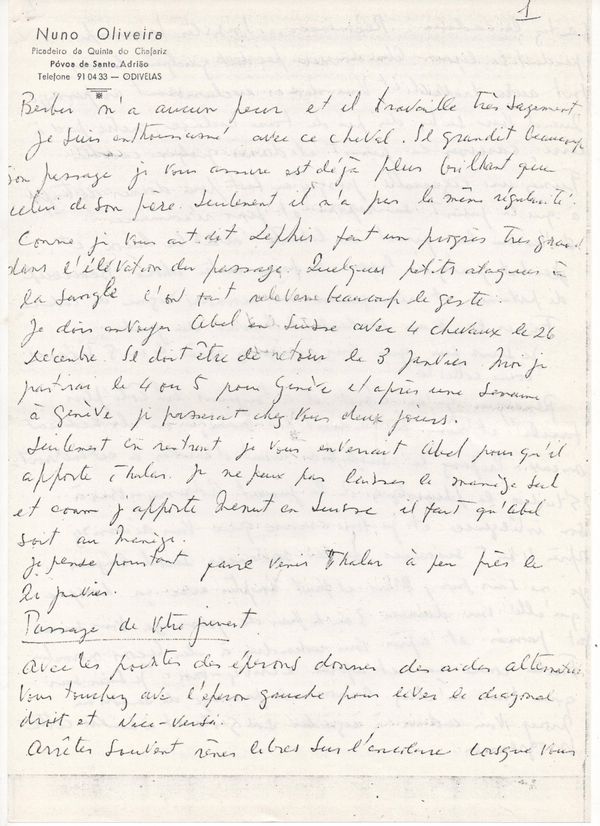 1
Nuno Oliveira
Picadeiro da Quinta do Chafariz
Póvoa de Santo Adrião
Telefone 91 04 33 — ODIVELAS
Berber n'a aucun peur et il travaille très sagement
je suis enthousiasmé avec ce cheval. Il grandit beaucoup
son passage je vous assure est déjà plus brilhant que
celui de son père. Seulement il n'a pas la même régularité.
Comme je vous ait dit Zephir fait un progrès tres grand
dans l'élévation du passage. Quelques petits ataques à
la l'ont fait beaucoup le geste.
Je dois Abel en Suisse avec 4 chevaux le 26
Décembre. Il doit être de retour le 3 janvier. Moi je
partirai le 4 ou 5 pour Genève et après une semaine
à Genève je passerait chez vous deux jours.
Seulement en rentrant je vous enverrait Abel pour qu'il
apporte Thalar. Je ne peux pas laisser le manège seul
et comm j'apporte en Suisse il faut qu'Abel
soit au Manège.
je pense pourtant Thalar à peu près le
21 janvier.
Passage de votre jument
Avec les pointes des éperons donner des aides alternées
Vous touchez avec l'éperon gauche pour lever le diagonal
droit et vice-versa.
Arrêtes souvent rênes libres sur l'encolure lorsque vous